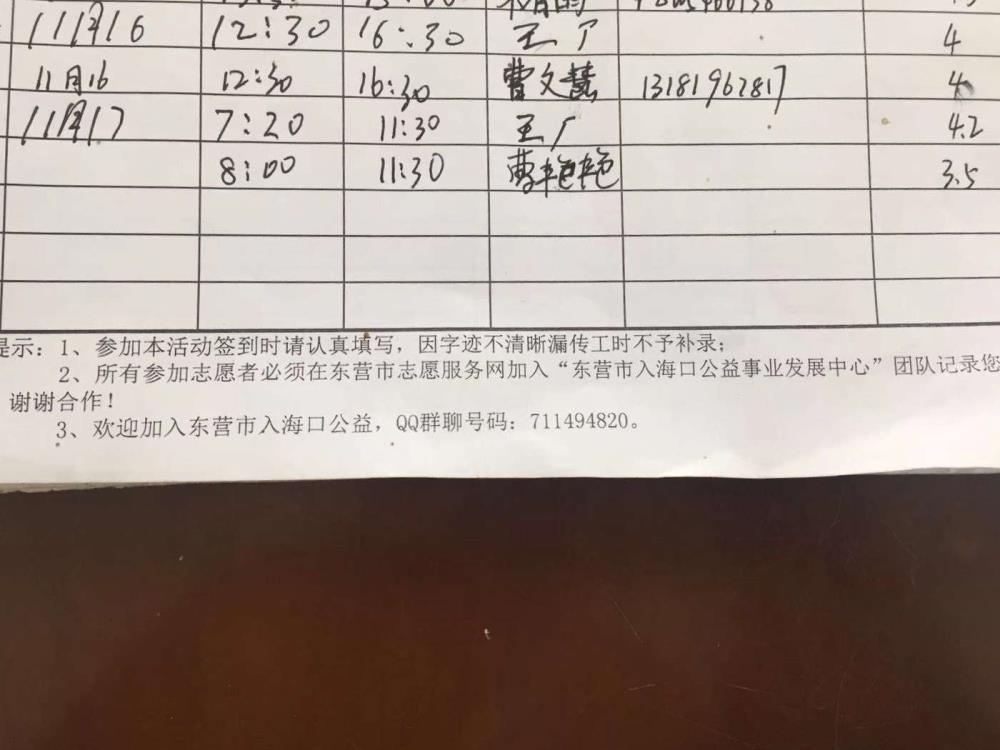 11月16 12:30 16:30 王厂 4
11月16 12:30 16:30 曹文慧 13181962817 4
11月17 7:20 11:30 王厂 4.2
8:00 11:30 曹艳艳 3.5
提示：1、参加本活动签到时请认真填写，因字迹不清晰漏传工时不予补录；
2、所有参加志愿者必须在东营市志愿服务网加入“东营市入海口公益事业发展中心”团队记录您
谢谢合作！
3、欢迎加入东营市入海口公益，QQ群聊号码：711494820。